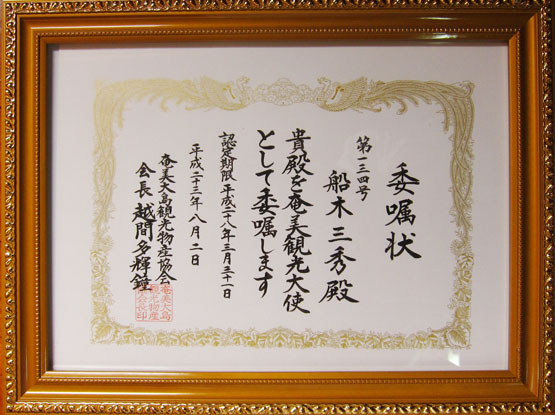 委嘱状
第一三四号
船木三秀殿
貴殿を奄美観光大使
として委嘱します
認定期限 平成二十八年三月三十一日
平成二十三年八月二日
奄美大島観光物産協会
会長 越間多輝鐘